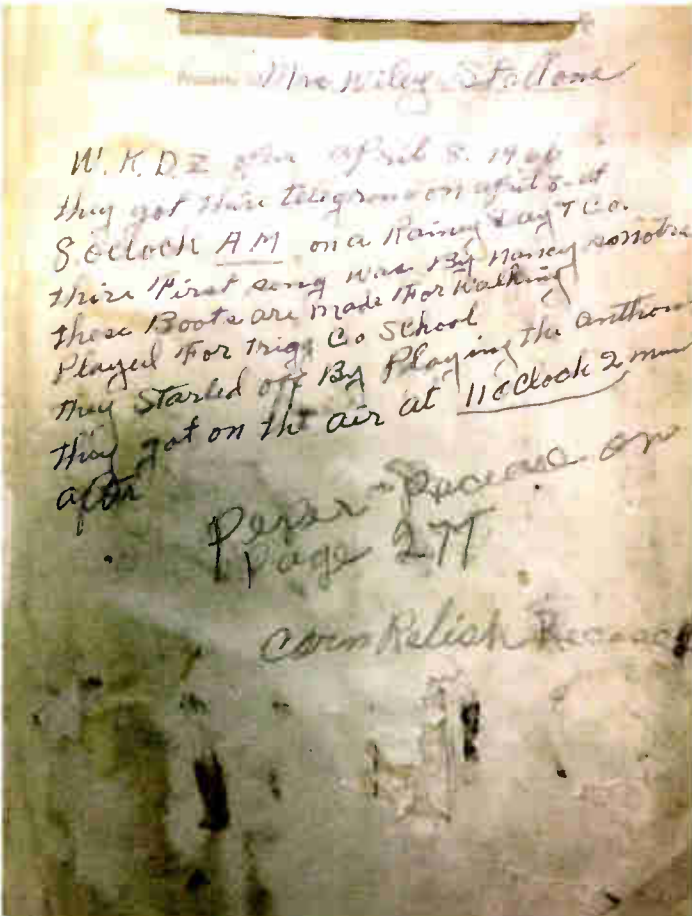 Mrs Wiley Stallons
W.K.D.Z on April 8. 1966
they got thire telegrame on april 8-at
8 oclock AM on a Rainey Day T Co.
thire First song was By Nancy sonotra
these Boots are made For Walking
Played For Trigg Co School
they Started off By Playing the anthom
they got on tht air at 11 oclock 2 min
after
on
Page 277
Corn Relish